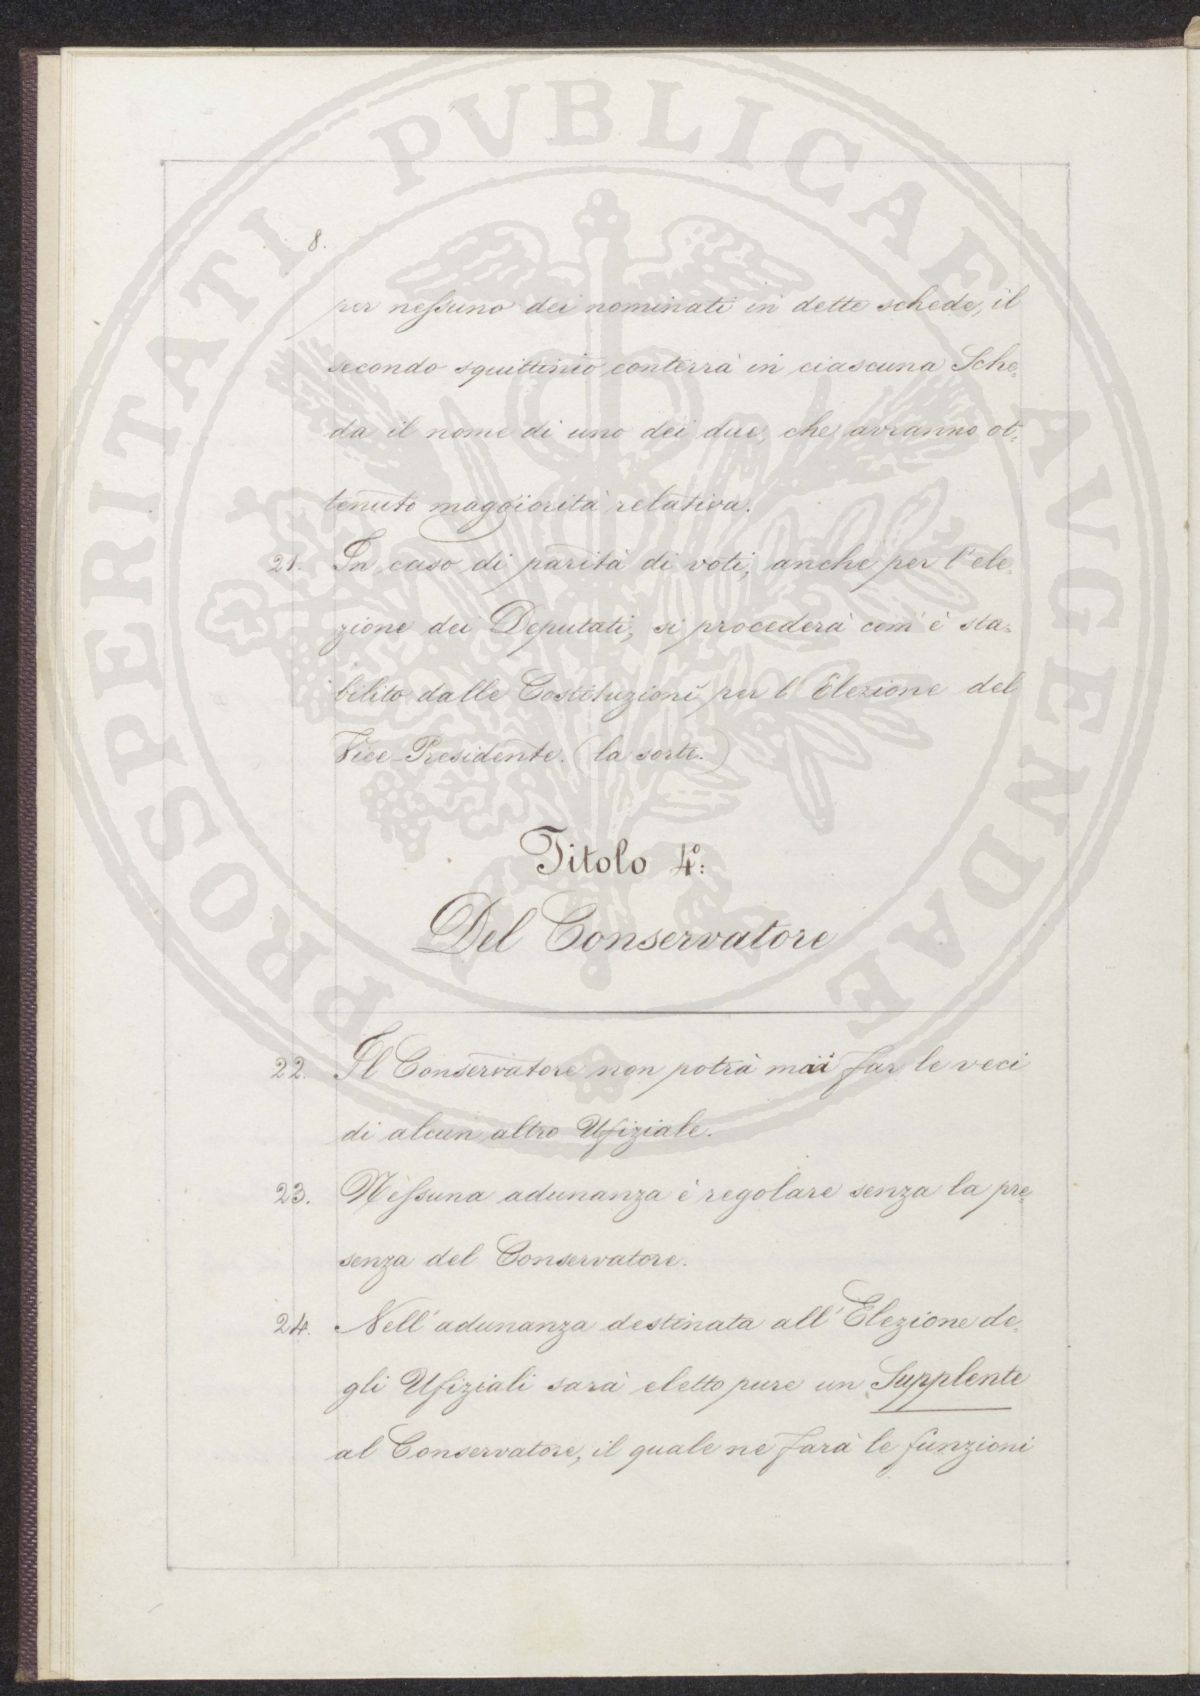 8.
per nessuno dei nominati in dette schede, il
secondo squittinio conterrà in ciascuna Sche-
da il nome di uno dei due, che avranno ot-
tenuto maggiorità relativa.
21. In caso di parità di voti, anche per l'ele-
zione dei Deputati, si procederà com'è sta-
bilito dalle Costituzioni per l'Elezione del
Vice-Presidente. (la sorte.)
Titolo 4º:
Del Conservatore
22. Il Conservatore non potrà mai far le veci
di alcun altro Ufiziale.
23. Nessuna adunanza è regolare senza la pre-
senza del Conservatore.
24. Nell'adunanza destinata all'Elezione de-
gli Ufiziali sarà eletto pure un Supplente
al Conservatore, il quale ne farà le funzioni
PROSPERITATI PVBLICAE AVGENDAE